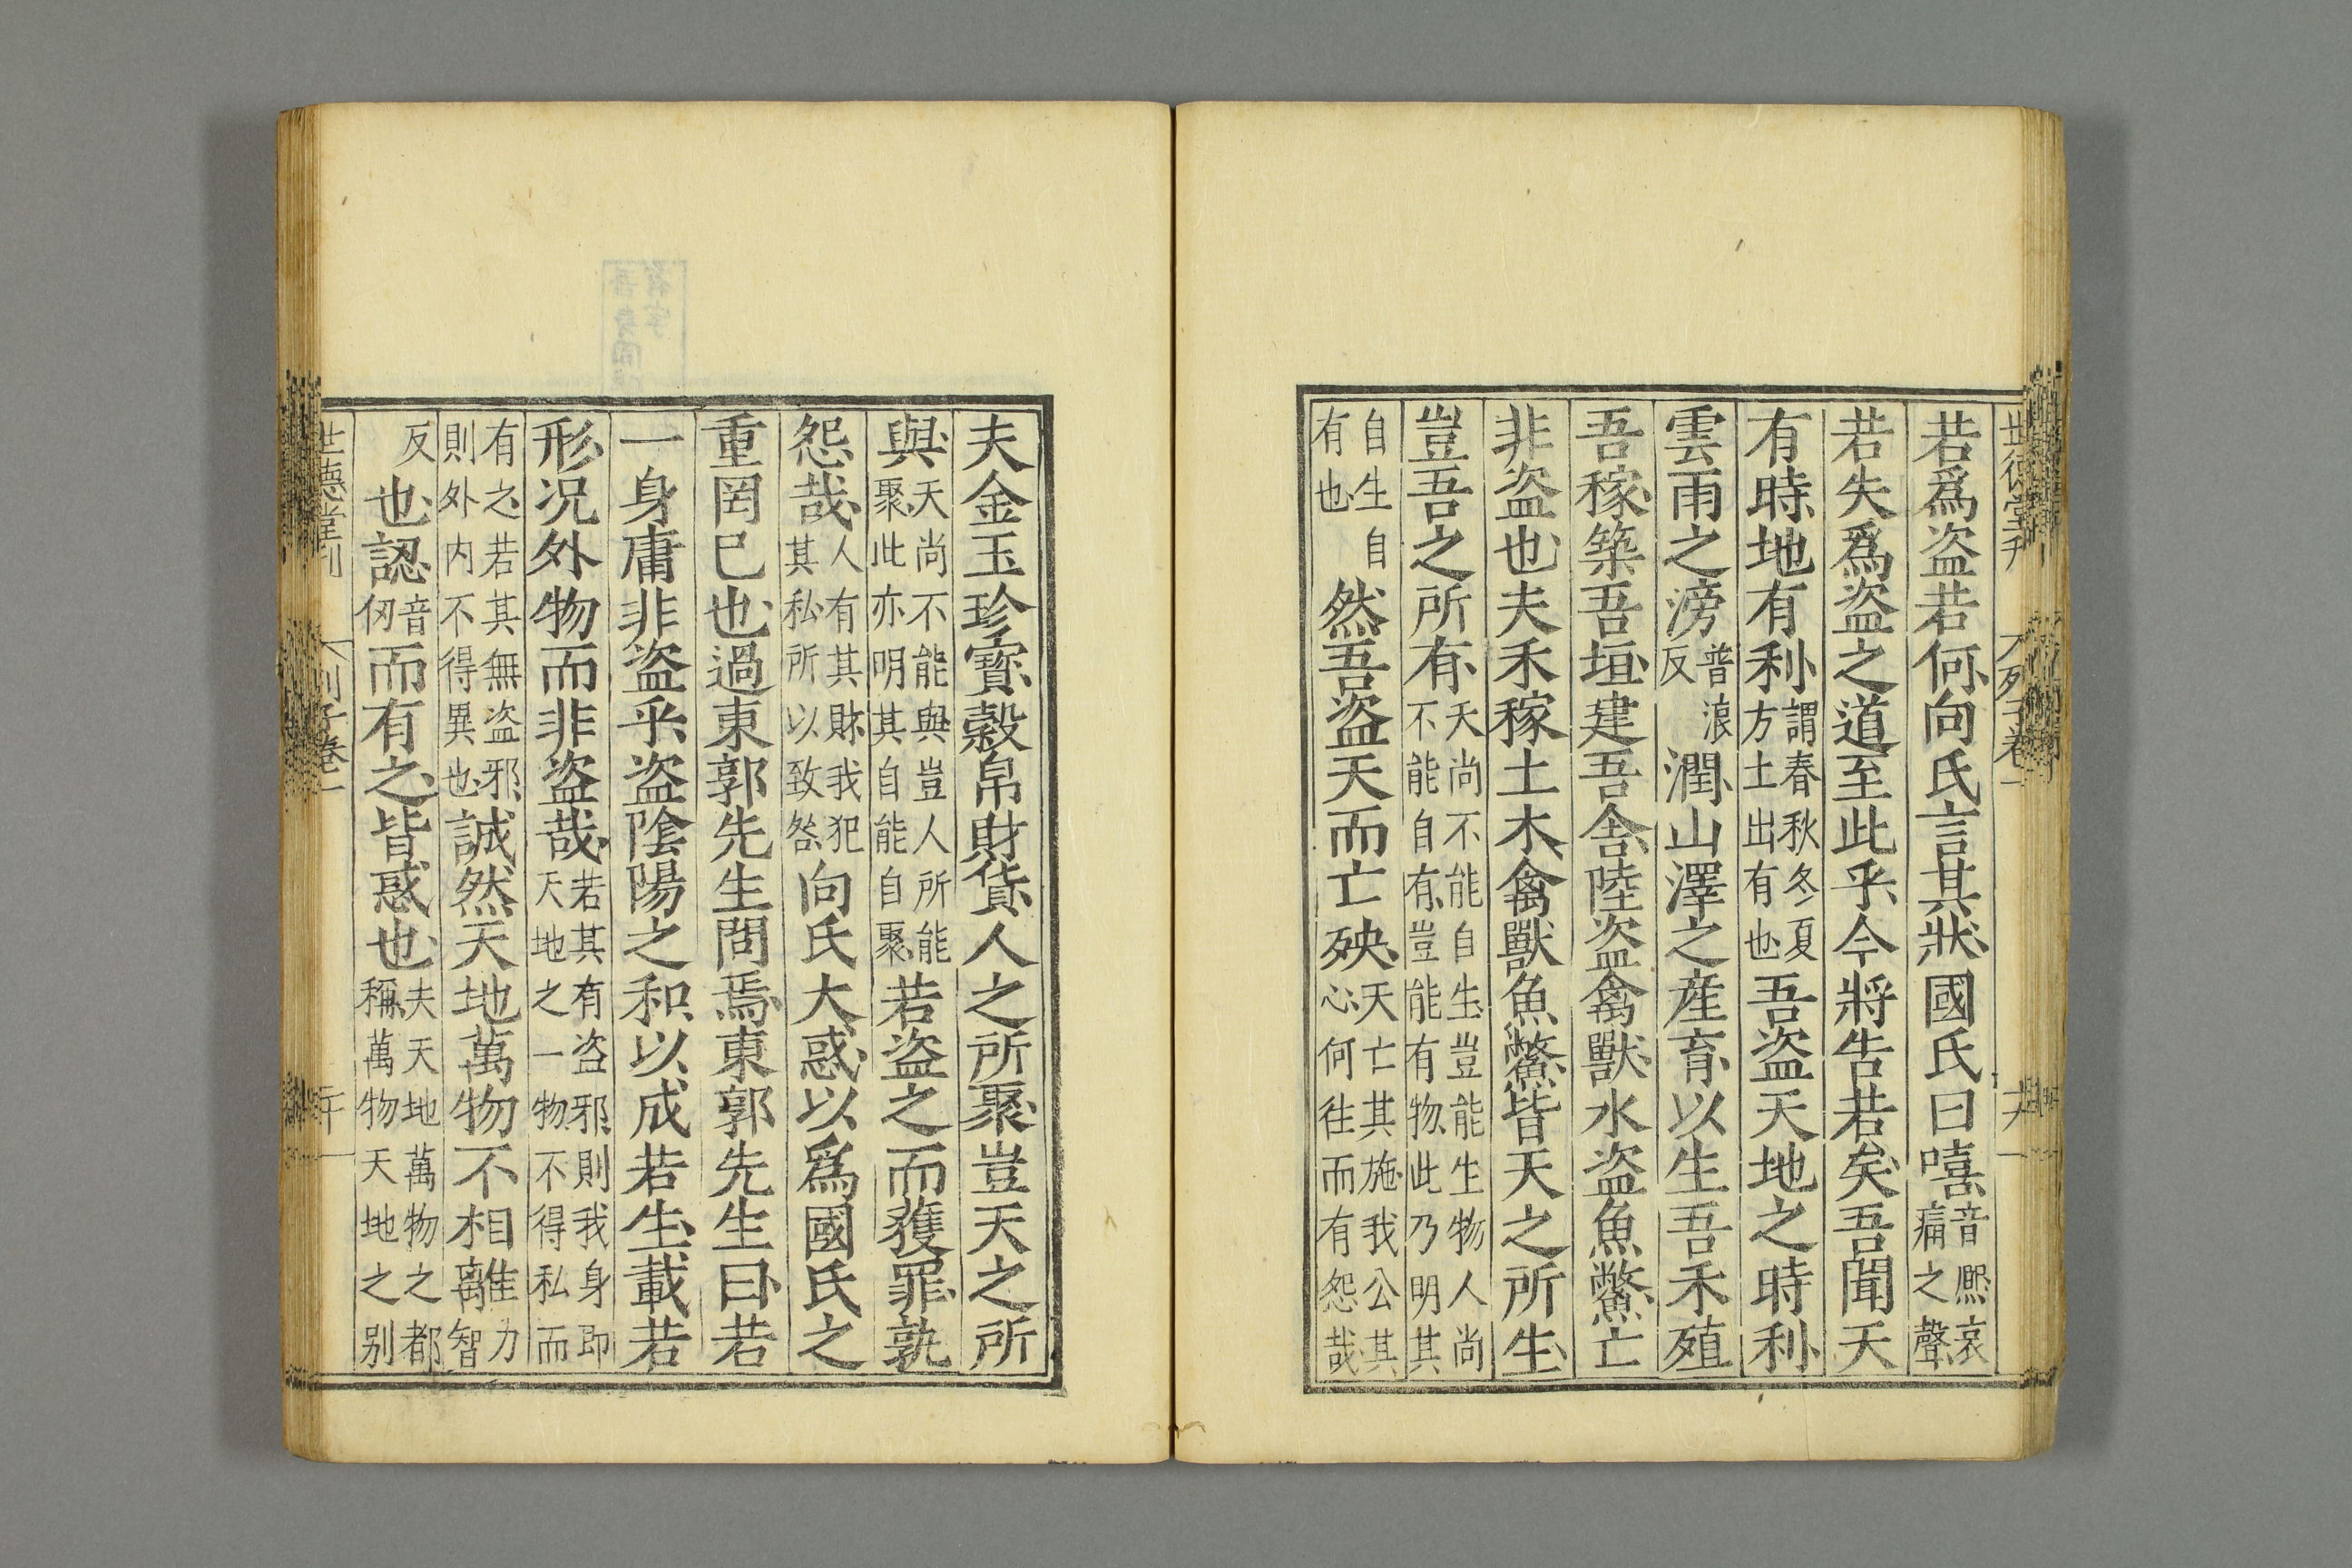 世德堂刊 列子卷一 十九
若爲盗若何向氏言其狀國氏曰嘻音熈哀痛之聲
若失爲盗之道至此乎今將告若矣吾聞天
有時地有利謂春秋冬夏方土出有也吾盗天地之時利
雲雨之滂普浪反潤山澤之産育以生吾禾殖
吾稼築吾垣建吾舍陸盗禽獸水盗魚鱉亡
非盗也夫禾稼土木禽獸魚鱉皆天之所生
豈吾之所有天尚不能自生豈能生物人尚不能自有豈能有物此乃明其
自生自有也然吾盗天而亡殃天亡其施我公其心何往而有怨哉
夫金玉珍寳穀帛財貨人之所聚豈天之所
與天尚不能與豈人所能聚此亦明其自能自聚若盗之而獲罪孰
怨哉人有其財我犯其私所以致咎向氏大惑以爲國氏之
重罔已也過東郭先生問焉東郭先生曰若
一身庸非盗乎盗陰陽之和以成若生載若
形况外物而非盗哉若其有盗邪則我身即天地之一物不得私而
有之若其無盗邪則外内不得異也誠然天地萬物不相離力智
反也認音仞而有之皆惑也夫天地萬物之都稱萬物天地之别
世德堂刊 列子卷一